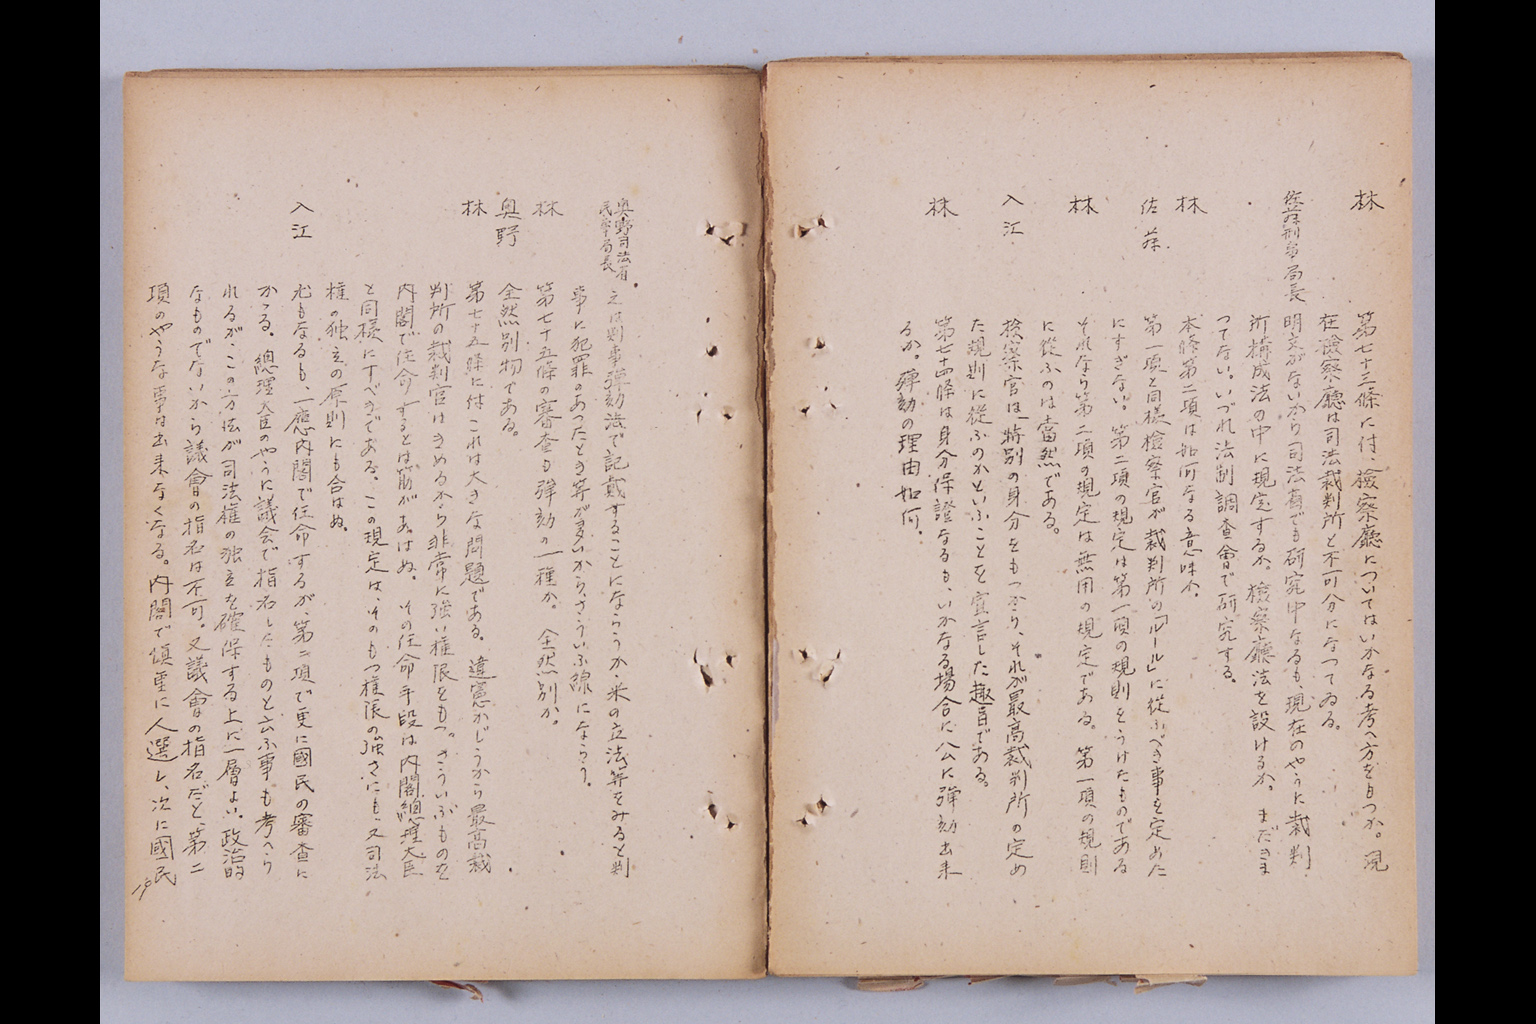 林 第七十三條に付、檢察廳についてはいかなる考へ方をもつか。現
在檢察廳は司法裁判所と不可分になつてゐる。
佐藤刑事局長 明文がないから司法省でも研究中なるも、現在のやうに裁判
所構成法の中に規定するか。檢察廳法を設けるか。まだきま
つてない。いづれ法制調査會で研究する。
林 本條第二項は如何なる意味か。
佐藤 第一項と同樣檢察官が裁判所の「ルール」に從ふべき事を定めた
にすぎない。第二項の規定は第一項の規則をうけたものである
林 それなら第二項の規定は無用の規定である。第一項の規則
に從ふのは當然である。
入江 檢察官は、特別の身分をもつから、それが最高裁判所の定め
た規則に從ふのかといふことを宣言した趣旨である。
林 第七十四條は身分保證なるも、いかなる場合に公に彈劾出來
るか。彈劾の理由如何。
奥野司法省民事局長 之は判事彈劾法で記載することにならうか、米の立法等をみると判
事に犯罪のあつたとき等が多いから、さういふ線にならう。
林 第七十五條の審査も彈劾の一種か。全然別か。
奥野 全然別物である。
林 第七十五條に付、これは大きな問題である。違憲かどうかも最高裁
判所の裁判官はきめるから非常に強い權限をもつ。さういふものを
内閣で任命するとは筋があはぬ。その任命手段は内閣總理大臣
と同樣にすべきである。この規定は、そのもつ權限の強さにも、又司法
權の独立の原則にも合はぬ。
入江 尤もなるも、一應内閣で任命するが、第二項で更に國民の審査に
かゝる。總理大臣のやうに議会で指名したものと云ふ事も考へら
れるが、この方法が司法權の独立を確保する上に一層よい。政治的
なものでないから議會の指名は不可。又議會の指名だと、第二
項のやうな事は出來なくなる。内閣で愼重に人選し、次に國民